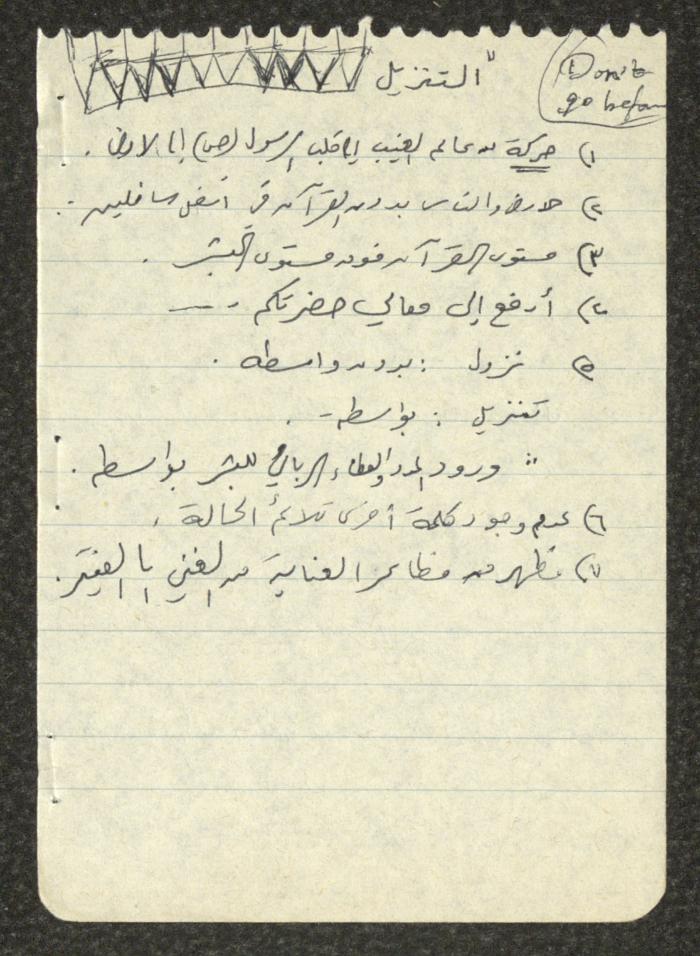 "التنزيل
Don't
go before
١) حركة من عالم الغيب إلى قلب الرسول (ص) إلى الارض .
٢) الارض والناس بدون القرآن في أسفل سافلين .
٣) مستوى القرآن فوق مستوى البشر .
٤) أرفع إلى معالي حضرتكم . —
٥ نزول : بدون واسطه .
تنزيل : بواسطه - .
∴ ورود المدد والعطاء الرباني للبشر بواسطه .
٦) عدم وجود كلمة أخرى تلائم الحالة .
٧) مظهر من مظاهر العناية من الغني إلى الفقير .